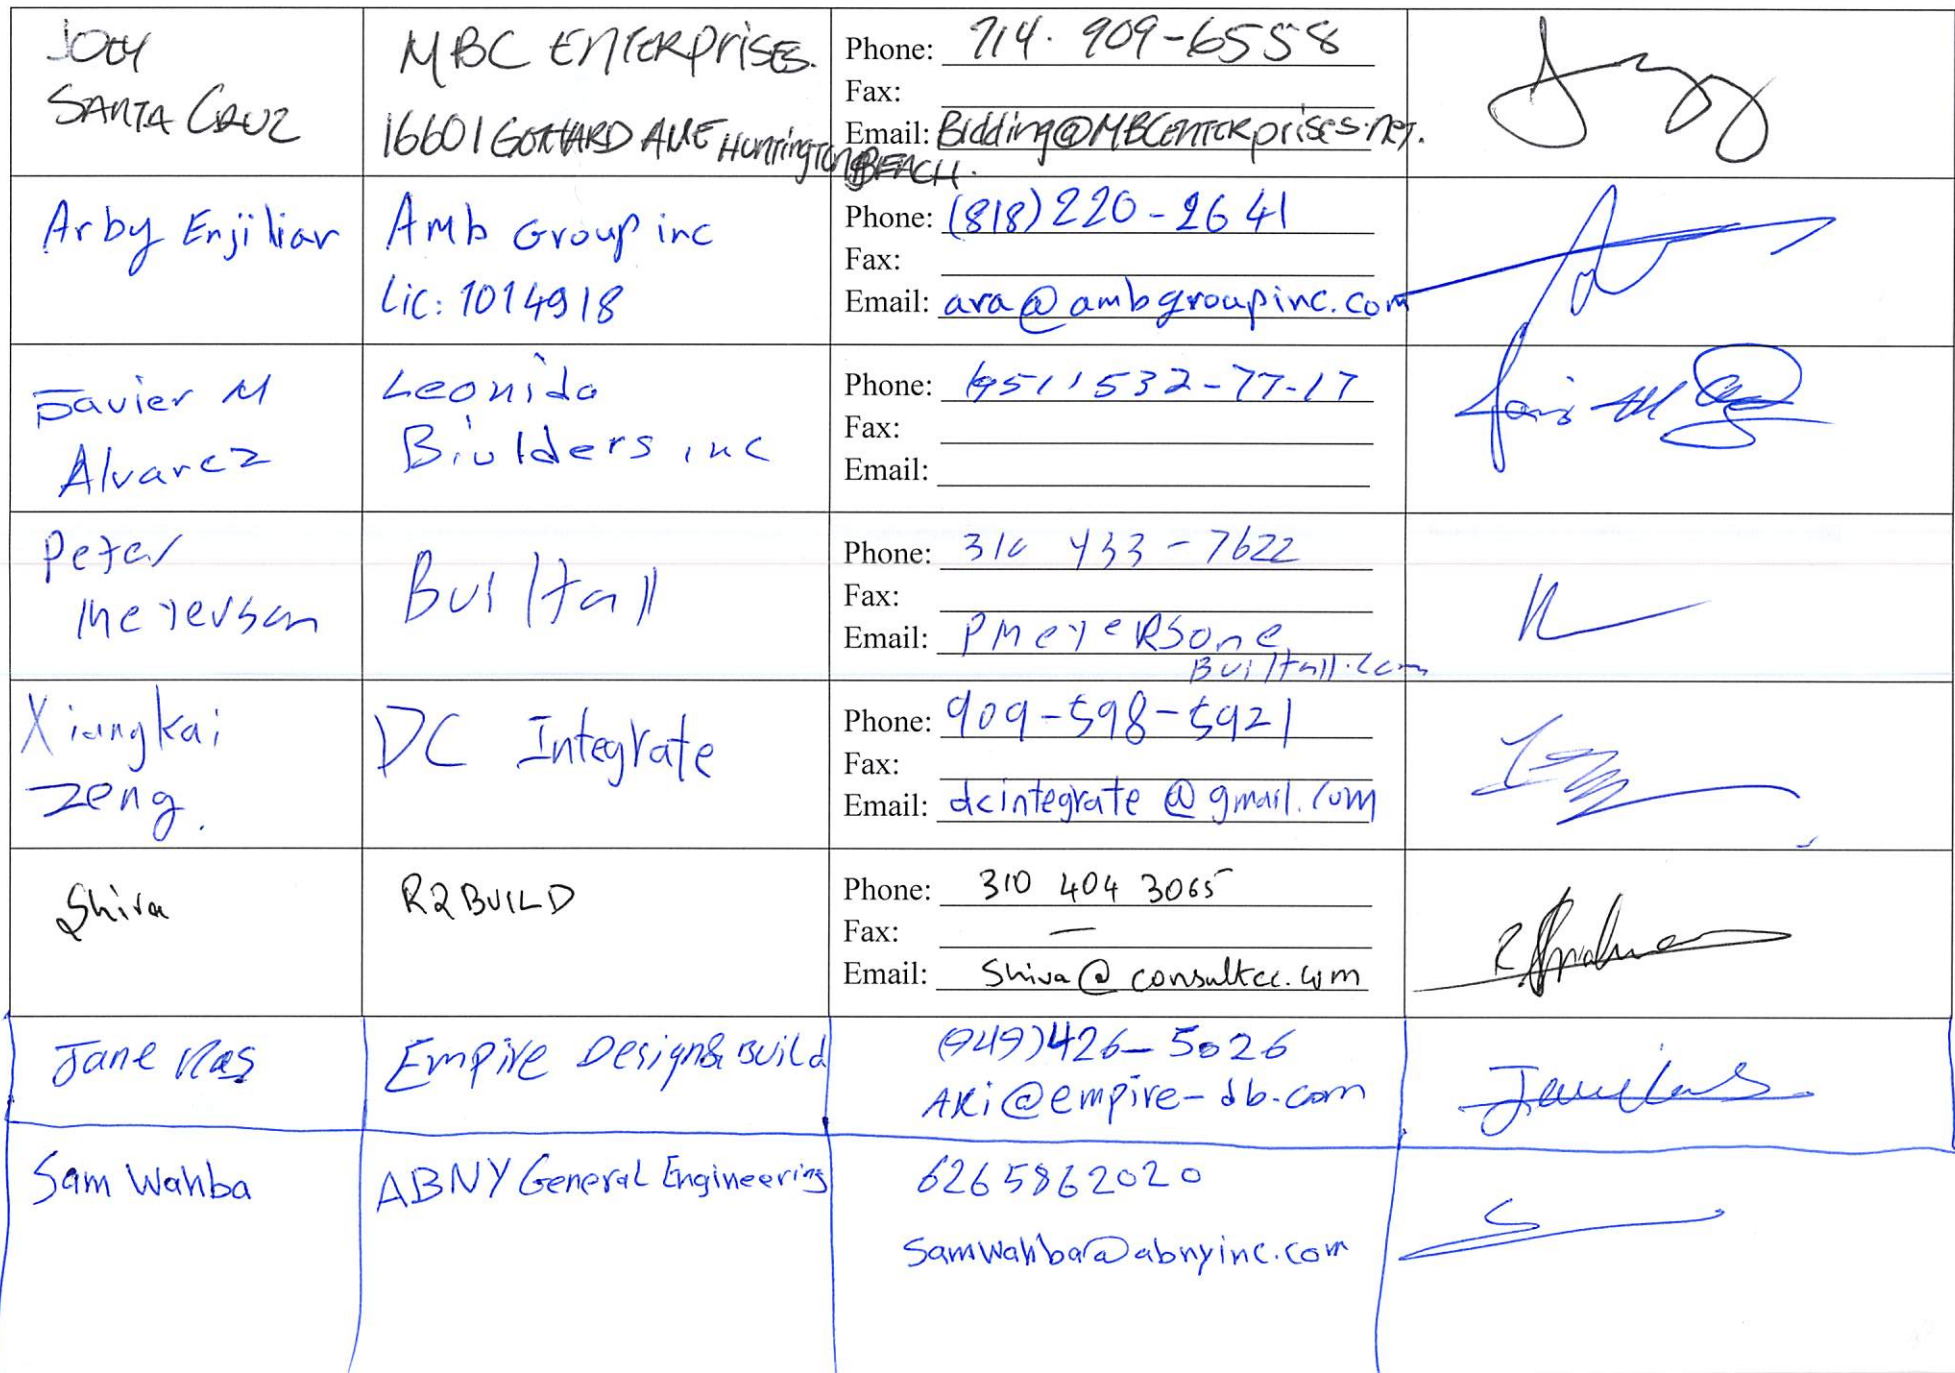 JOEY
SANTA CRUZ
MBC ENTERPRISES.
16601 GOTHARD AVE HUNTINGTON BEACH.
Phone: 714. 909-6558
Fax:
Email: Bidding@MBCENTERprises.net.
Arby Enjiliar
Amb Group inc
Lic: 1014918
Phone: (818) 220-2641
Fax:
Email: ara@ambgroupinc.com
Javier M
Alvarez
Leonida
Biulders inc
Phone: (951) 532-77-17
Fax:
Email:
Peter
Meyerson
Builtall
Phone: 310 433-7622
Fax:
Email: PMeyeRSon@
Builtall.com
Xiangkai
Zeng.
DC Integrate
Phone: 909-598-5921
Fax:
Email: dcintegrate@gmail.com
Shiva
R2BUILD
Phone: 310 404 3065
Fax: —
Email: Shiva@consultcc.com
Jane Ras
Empire Design & Build
(949)426-5026
ARi@empire-db.com
Sam Wahba
ABNY General Engineering
6265862020
Samwahba@abnyinc.com